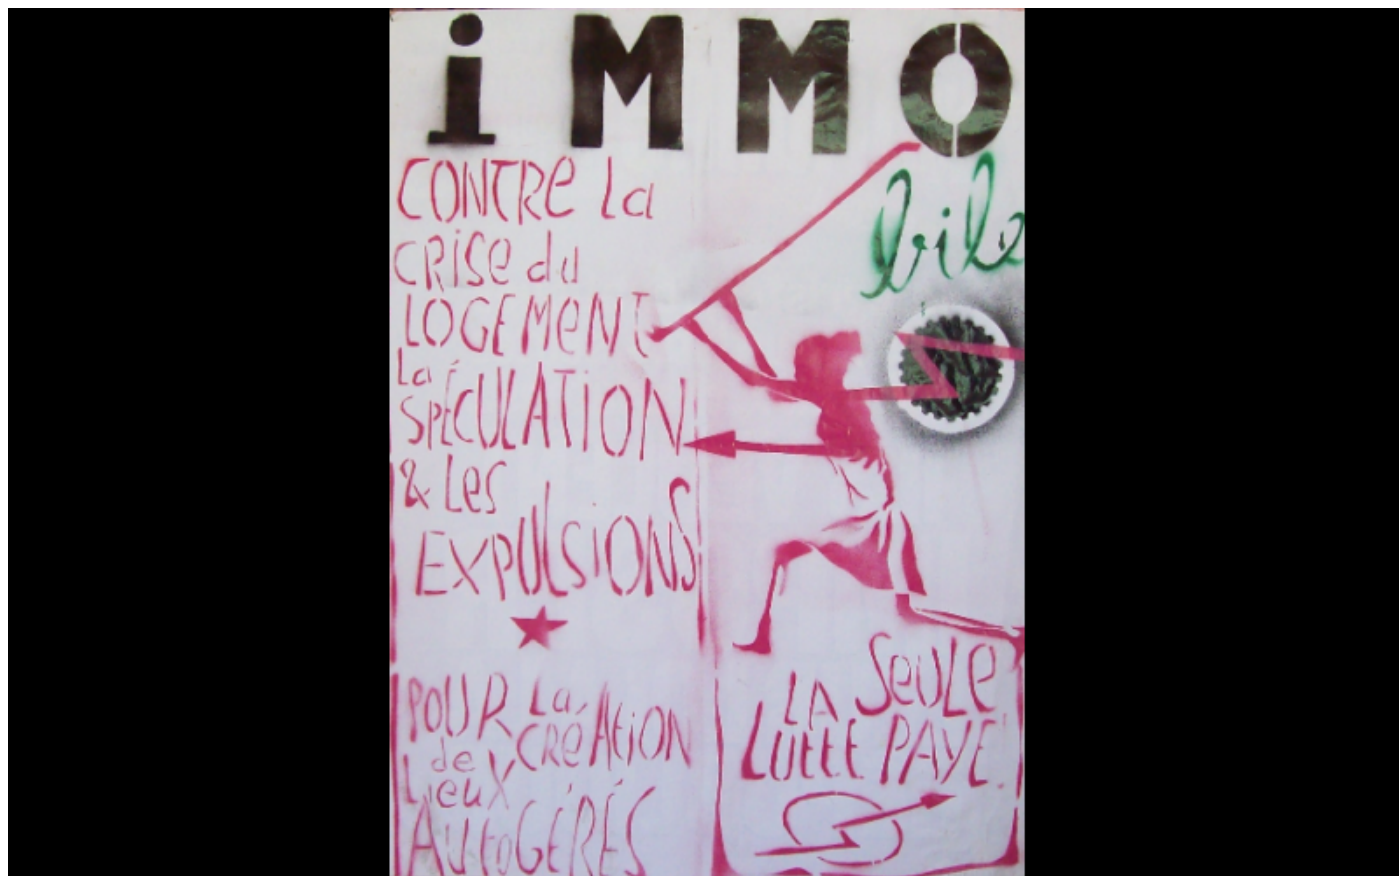 iMMO
bile
CONTRE La
CRiSe du
LOGEMeNT
La
SPÉCULATION
& Les
EXPULSiONS
POUR La
CRéAtiON
de
Lieux
AUtoGÉRÉS
LA SeULe
LUttE PAYE